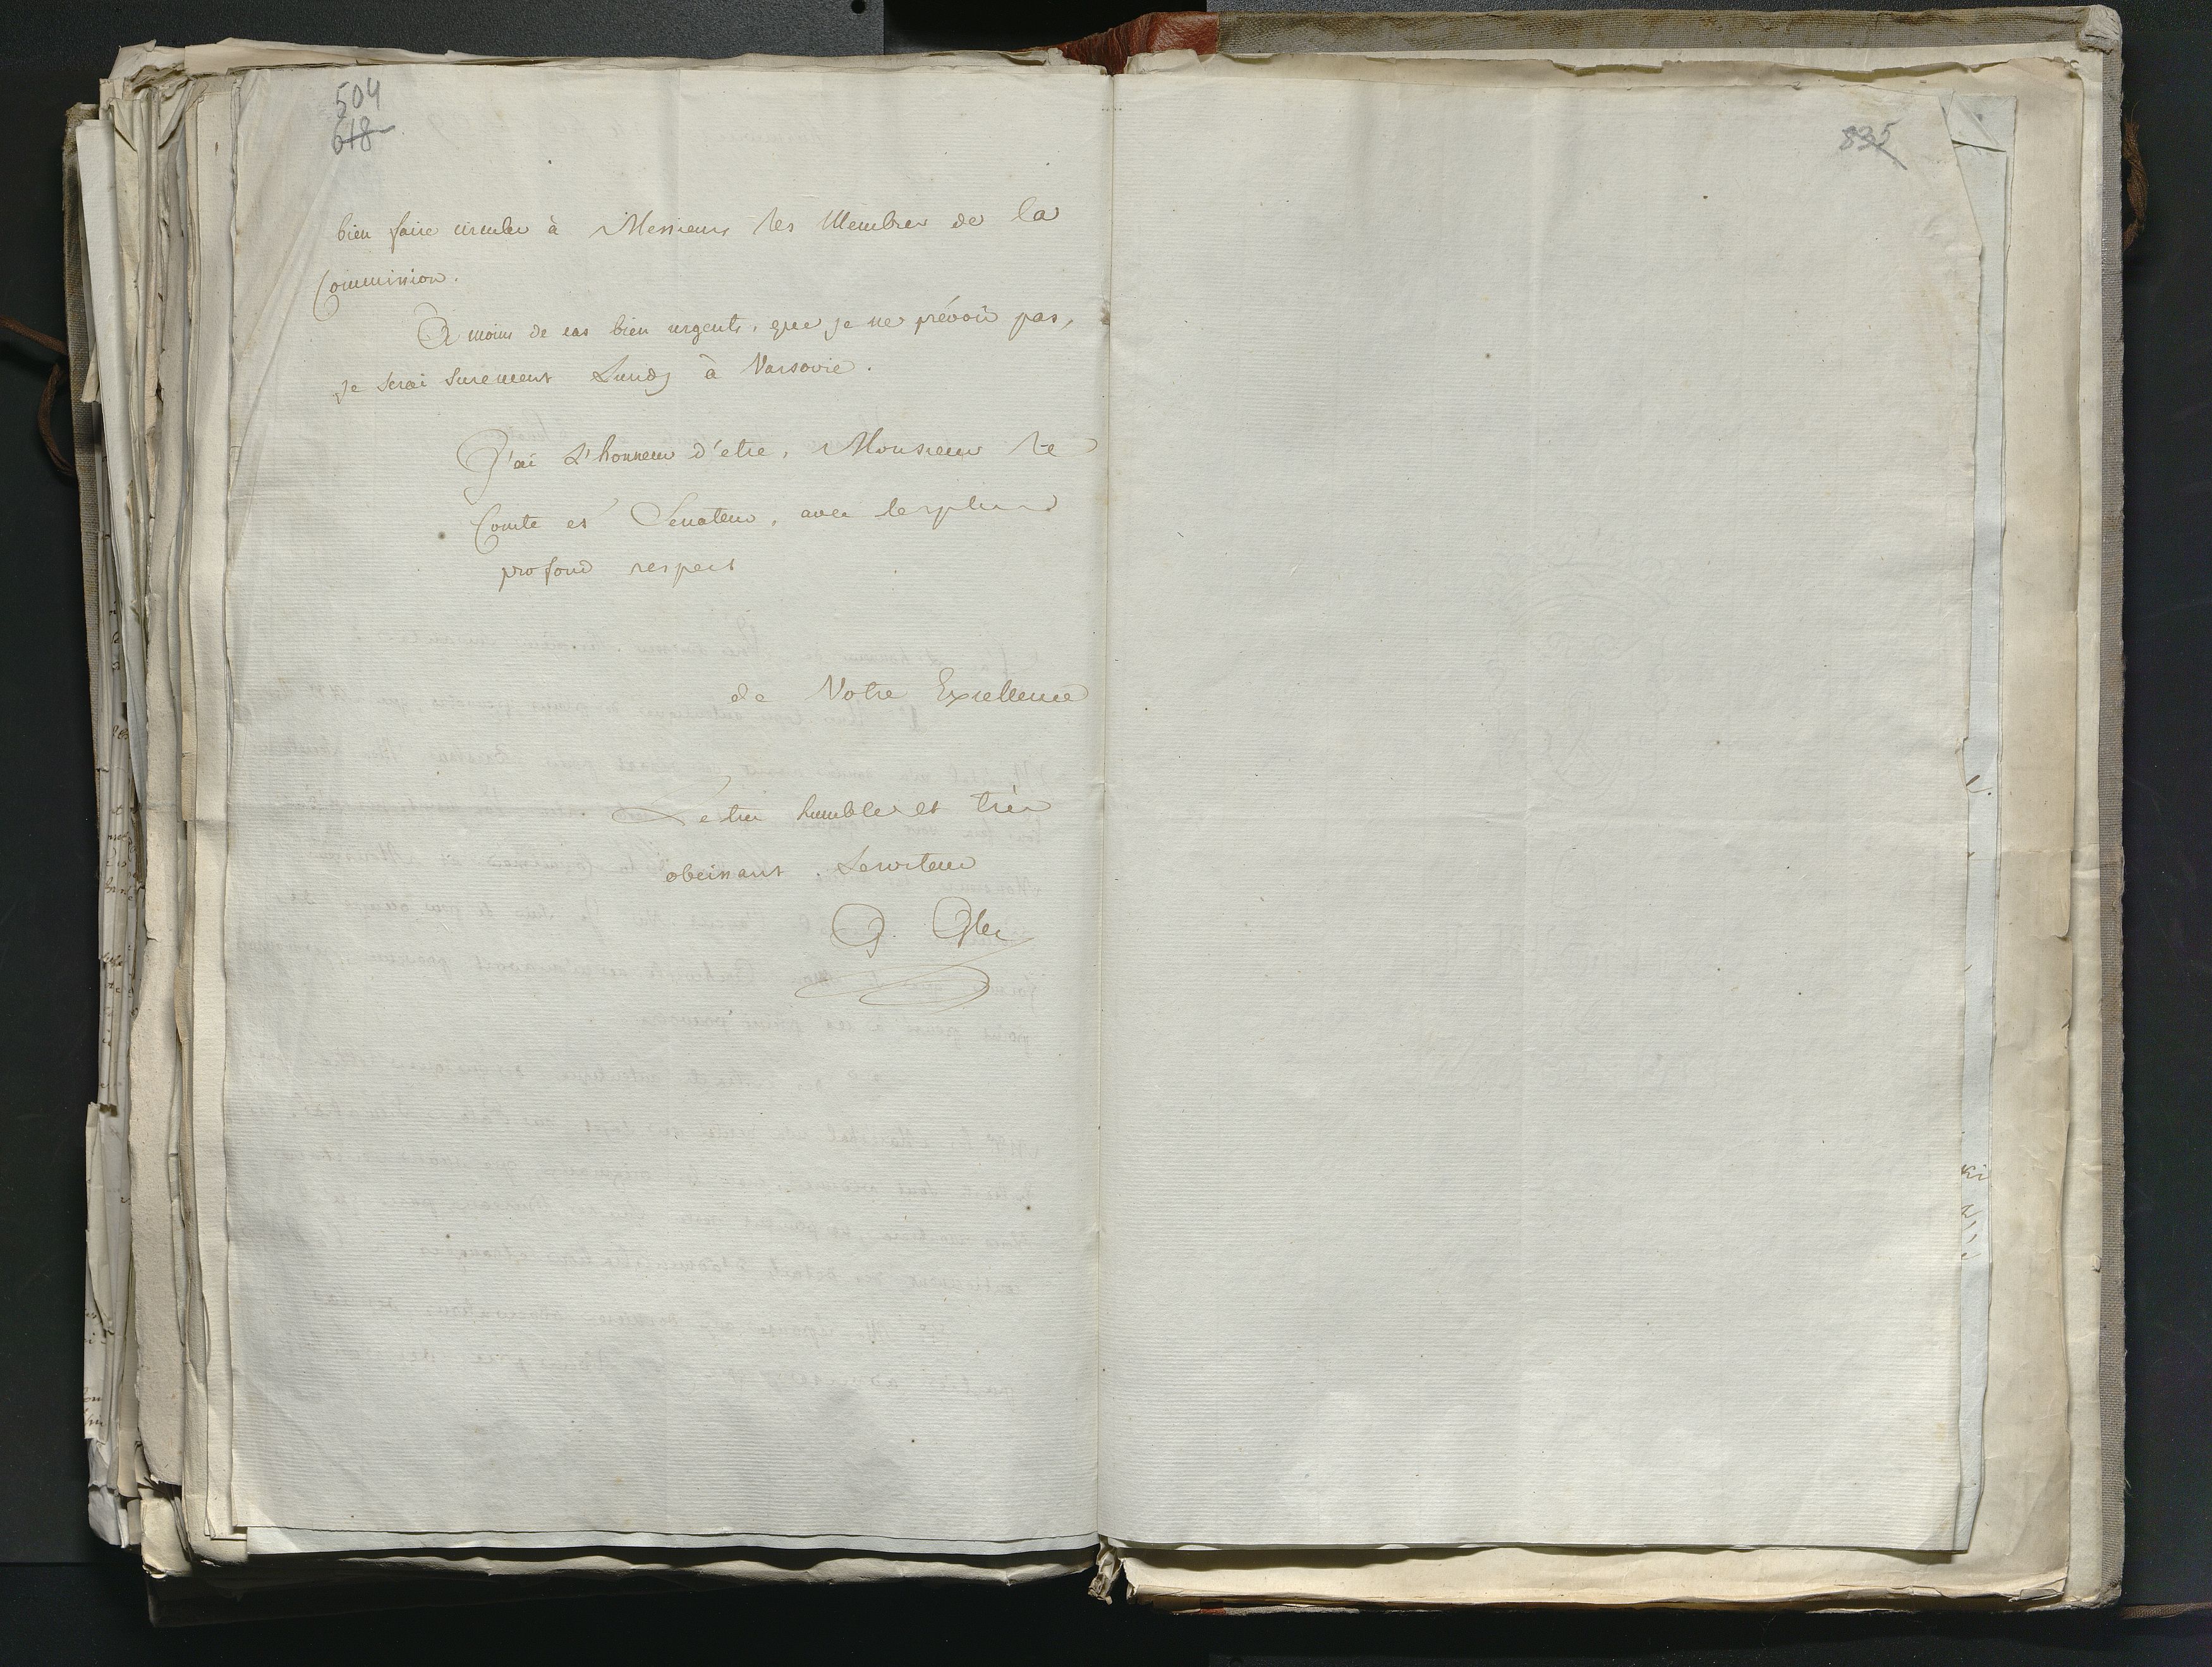 504
618
835
bien faire circuler à Messieurs les Membres de la
Commission.
A moins de cas bien urgents, que je ne prévois pas,
je serai surement Lundy à Varsovie.
J'ai L'honneur d'etre, Monsieur le
Comte et Senateur, avec le plus
profond respect
de Votre Excellence
Le tres humble et très
obeissant Serviteur